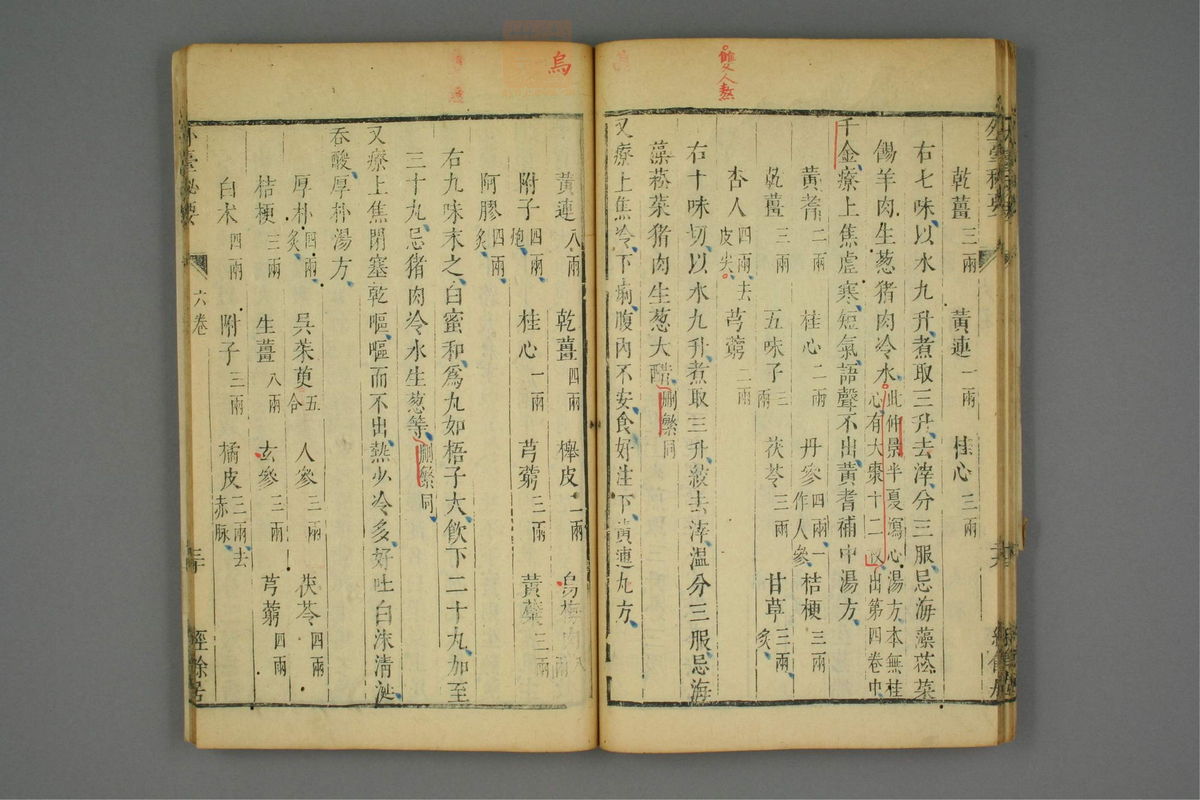 雙人熬
乾薑三兩 黃連一兩 桂心三兩
右七味以水九升煮取三升去滓分三服忌海藻菘菜
餳羊肉生葱猪肉冷水此仲景半夏瀉心湯方本無桂心有大棗十二枚出第四卷中
千金療上焦虛寒短氣語聲不出黃耆補中湯方
黃耆二兩 桂心二兩 丹參四兩一作人參 桔梗三兩
乾薑三兩 五味子三兩 茯苓三兩 甘草三兩炙
杏人四兩去皮尖 芎藭二兩
右十味切以水九升煮取三升絞去滓温分三服忌海
藻菘菜猪肉生葱大醋刪繁同
又療上焦冷下痢腹內不安食好注下黃連丸方
烏
黃連八兩 乾薑四兩 櫸皮二兩 烏梅肉八兩
附子四兩炮 桂心一兩 芎藭三兩 黃蘗三兩
阿膠四兩炙
右九味末之白蜜和爲丸如梧子大飲下二十丸加至
三十丸忌猪肉冷水生葱等刪繁同
又療上焦閉塞乾嘔嘔而不出熱少冷多好吐白沫清涎
吞酸厚朴湯方
厚朴四兩炙 吳茱萸五合 人參三兩 茯苓四兩
桔梗三兩 生薑八兩 玄參三兩 芎藭四兩
白术四兩 附子三兩 橘皮三兩去赤脉
外臺秘要 六卷 三十 經餘居